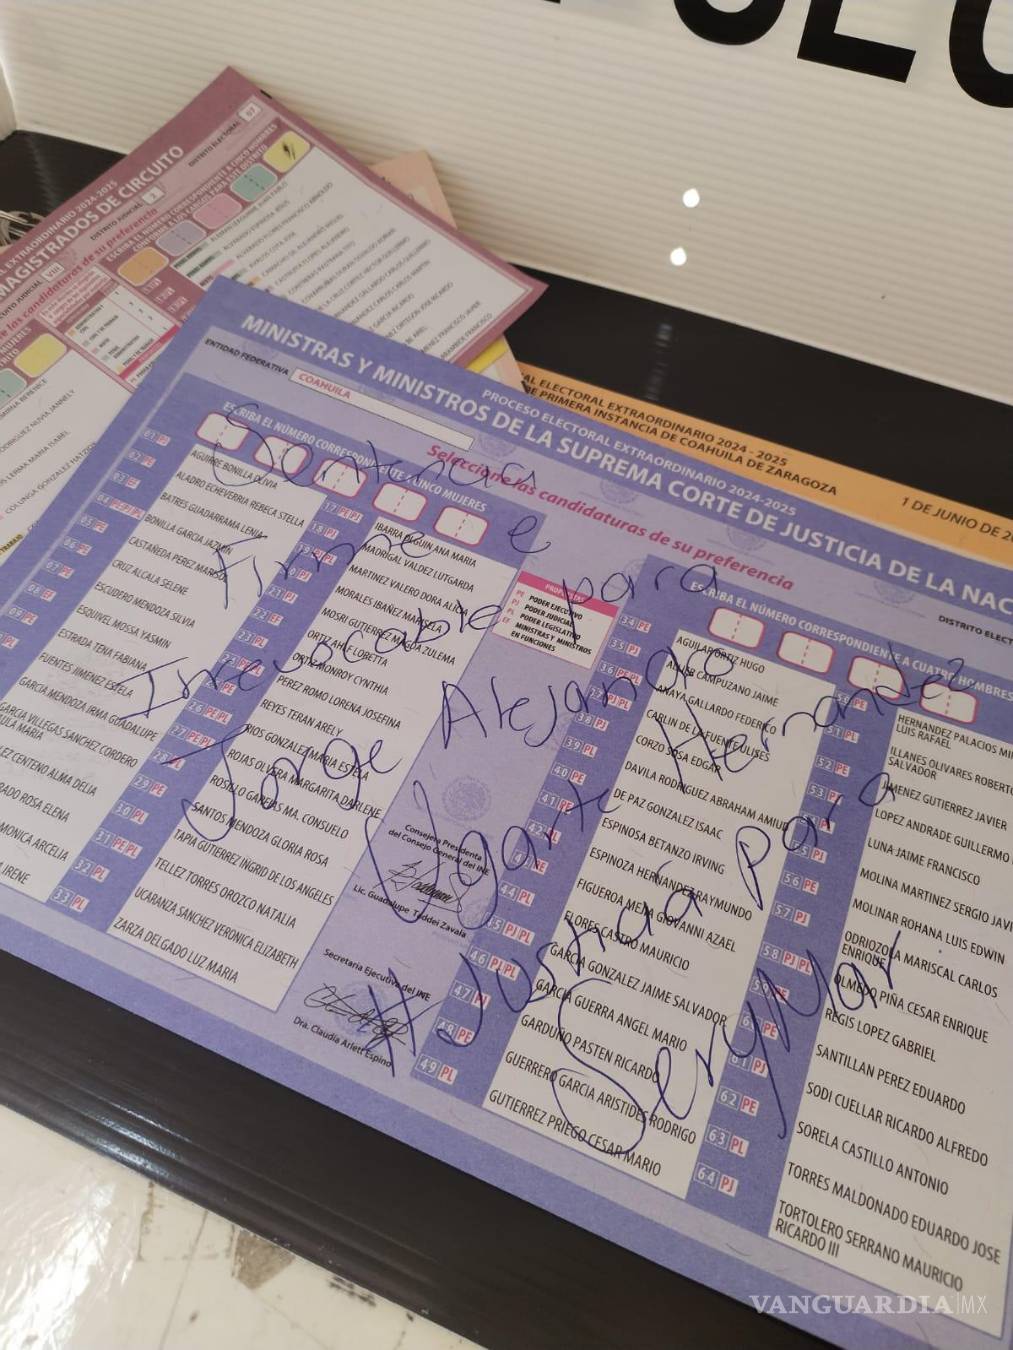 MAGISTRADOS DE CIRCUITO
MINISTRAS Y MINISTROS DE LA SUPREMA CORTE DE JUSTICIA DE LA NAC
PROCESO ELECTORAL EXTRAORDINARIO 2024-2025
ENTIDAD FEDERATIVA COAHUILA
Seleccione las candidaturas de su preferencia
DISTRITO ELECT
AL ELECTORAL EXTRAORDINARIO 2024 - 2025
DE PRIMERA INSTANCIA DE COAHUILA DE ZARAGOZA
1 DE JUNIO DE 2
ESCRIBA EL NÚMERO CORRESPONDIENTE A CINCO MUJERES
AGUIRRE BONILLA OLIVIA
ALADRO ECHEVERRIA REBECA STELLA
BATRES GUADARRAMA LENIA
BONILLA GARCIA JAZMIN
CASTAÑEDA PEREZ MARISOL
CRUZ ALCALA SELENE
ESCUDERO MENDOZA SILVIA
ESQUIVEL MOSSA YASMIN
ESTRADA TENA FABIANA
FUENTES JIMENEZ ESTELA
GARCIA MENDOZA IRMA GUADALUPE
GARCIA VILLEGAS SANCHEZ CORDERO
ULA MARIA
EZ CENTENO ALMA DELIA
ADO ROSA ELENA
MONICA ARCELIA
IRENE
IBARRA OLGUIN ANA MARIA
MADRIGAL VALDEZ LUTGARDA
MARTINEZ VALERO DORA ALICIA
MORALES IBAÑEZ MARISELA
MOSRI GUTIERREZ MAGDA ZULEMA
ORTIZ AHLF LORETTA
ORTIZ MONROY CYNTHIA
PEREZ ROMO LORENA JOSEFINA
REYES TERAN ARELY
RIOS GONZALEZ MARIA ESTELA
ROJAS OLVERA MARGARITA DARLENE
ROSILLO GARFIAS MA. CONSUELO
SANTOS MENDOZA GLORIA ROSA
TAPIA GUTIERREZ INGRID DE LOS ANGELES
TELLEZ TORRES OROZCO NATALIA
UCARANZA SANCHEZ VERONICA ELIZABETH
ZARZA DELGADO LUZ MARIA
PE PODER EJECUTIVO
PJ PODER JUDICIAL
PL PODER LEGISLATIVO
EF MINISTRAS Y MINISTROS
EN FUNCIONES
Consejera Presidenta
del Consejo General del INE
Lic. Guadalupe Taddei Zavala
Secretaria Ejecutiva del INE
Dra. Claudia Arlett Espino
ESCRIBA EL NÚMERO CORRESPONDIENTE A CUATRO HOMBRES
34 PE AGUILAR ORTIZ HUGO
35 PJ ALVER CAMPUZANO JAIME
ANAYA GALLARDO FEDERICO
CARLIN DE LA FUENTE ULISES
38 PJ CORZO SOSA EDGAR
39 PL DAVILA RODRIGUEZ ABRAHAM AMIUD
40 PE DE PAZ GONZALEZ ISAAC
ESPINOSA BETANZO IRVING
ESPINOZA HERNANDEZ RAYMUNDO
FIGUEROA MEJIA GIOVANNI AZAEL
44 PL FLORES CASTRO MAURICIO
GARCIA GONZALEZ JAIME SALVADOR
46 PJ PL GARCIA GUERRA ANGEL MARIO
GARDUÑO PASTEN RICARDO
48 PE GUERRERO GARCIA ARISTIDES RODRIGO
49 PL GUTIERREZ PRIEGO CESAR MARIO
HERNANDEZ PALACIOS MI
LUIS RAFAEL
ILLANES OLIVARES ROBERTO
SALVADOR
52 PE JIMENEZ GUTIERREZ JAVIER
LOPEZ ANDRADE GUILLERMO
LUNA JAIME FRANCISCO
MOLINA MARTINEZ SERGIO JAVI
56 PE MOLINAR ROHANA LUIS EDWIN
57 PJ ODRIOZOLA MARISCAL CARLOS
ENRIQUE
58 PJ PL OLMEDO PIÑA CESAR ENRIQUE
REGIS LOPEZ GABRIEL
SANTILLAN PEREZ EDUARDO
61 PJ SODI CUELLAR RICARDO ALFREDO
62 PE SORELA CASTILLO ANTONIO
63 PL TORRES MALDONADO EDUARDO JOSE
64 PJ TORTOLERO SERRANO MAURICIO
RICARDO III
Sentencia
Firme e
Irrevocable para
Jorge Alejandro Hernandez
Ugarte
# Justicia para
SeryMar
VANGUARDIA|MX